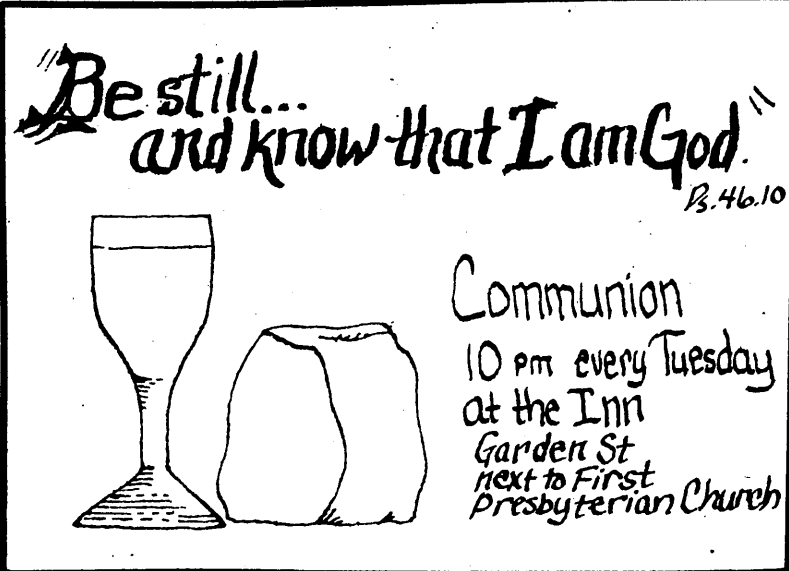 "Be still...
and know that I am God."
Ps.46.10
Communion
10 pm every Tuesday
at the Inn
Garden St
next to First
Presbyterian Church